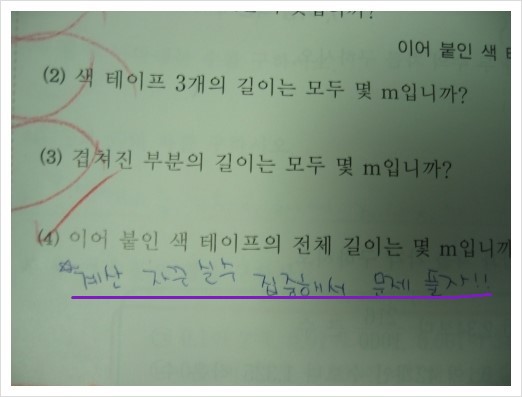 이어 붙인 색 테
(2) 색 테이프 3개의 길이는 모두 몇 m입니까?
(3) 겹쳐진 부분의 길이는 모두 몇 m입니까?
(4) 이어 붙인 색 테이프의 전체 길이는 몇 m입니까
☆계산 자꾸 실수 집중해서 문제 풀자!!